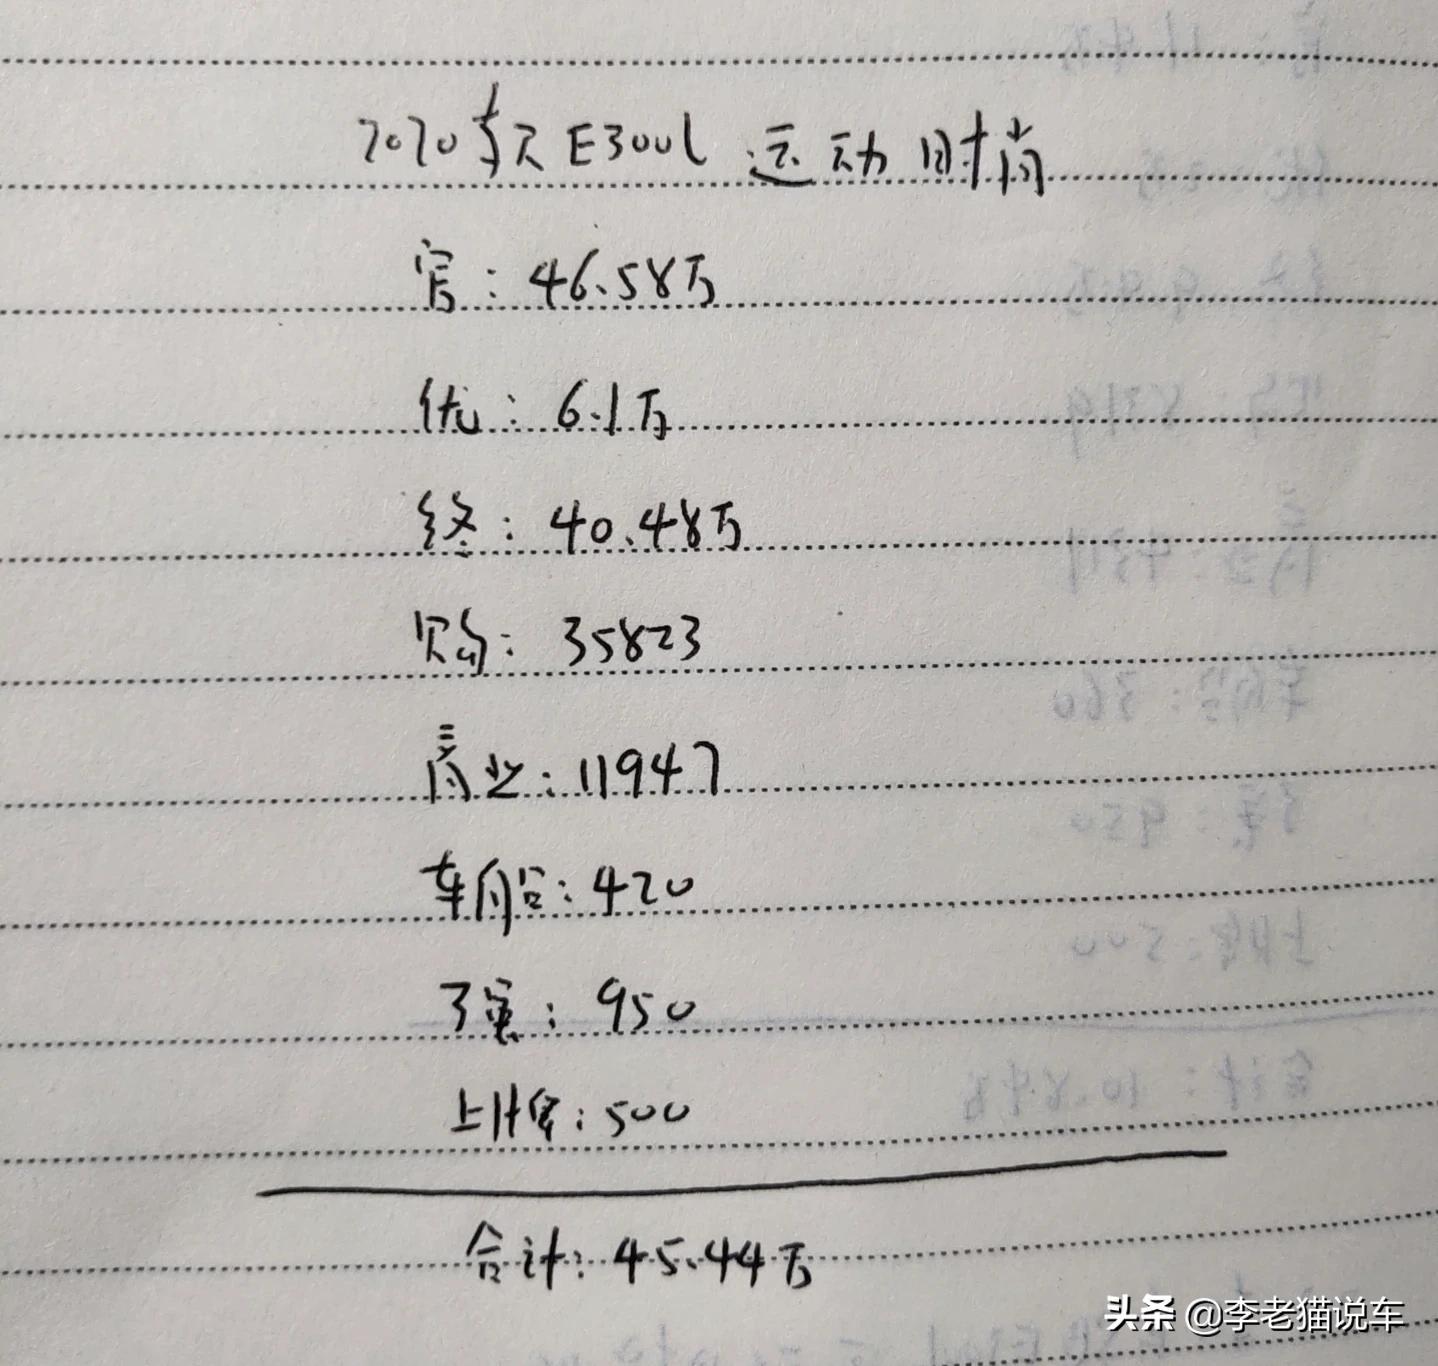 2020款E300L 运动时尚
官：46.58万
优：6.1万
终：40.48万
购：35823
商业：11947
车船：420
交强：950
上牌：500
合计：45.44万
头条 @李老猫说车